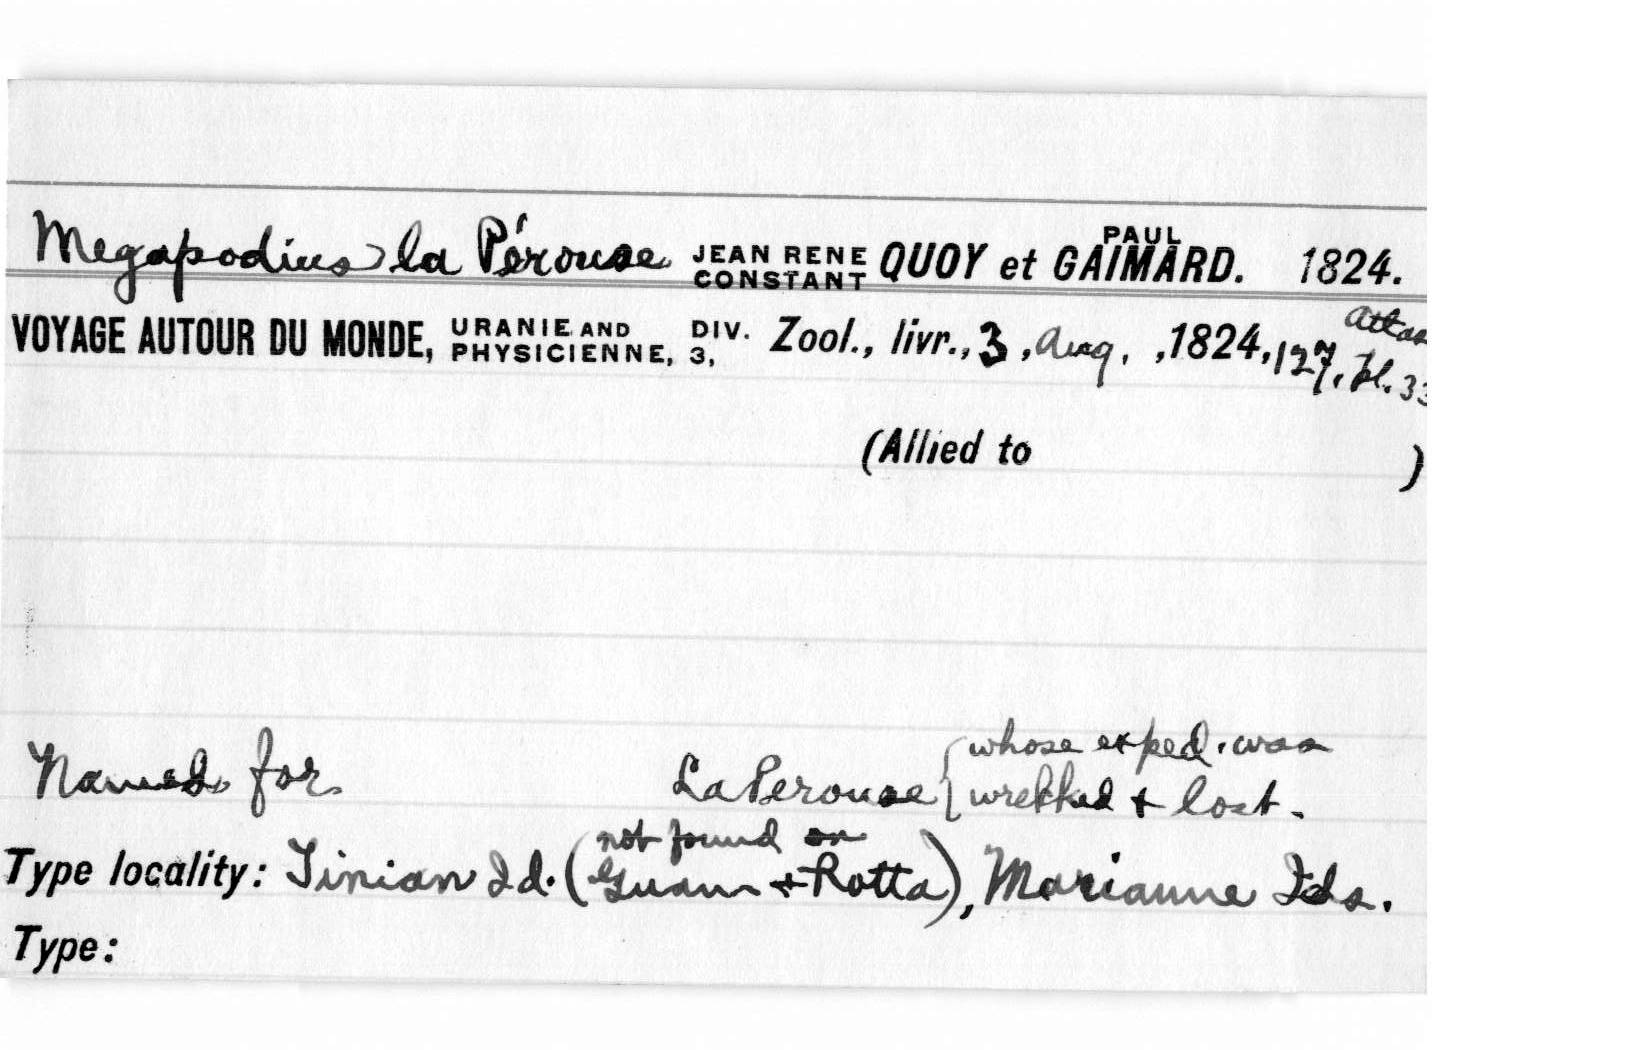 Megapodius la Pérouse JEAN RENE CONSTANT QUOY et PAUL GAIMARD. 1824.
VOYAGE AUTOUR DU MONDE, URANIE AND PHYSICIENNE, DIV. 3, Zool., livr., 3, Aug. , 1824, 127, Atlas pl. 33
(Allied to )
Named for La Perouse { whose exped. was
wrekked + lost.
Type locality: Tinian Id. (not found on Guam + Rotta), Marianne Ids.
Type: